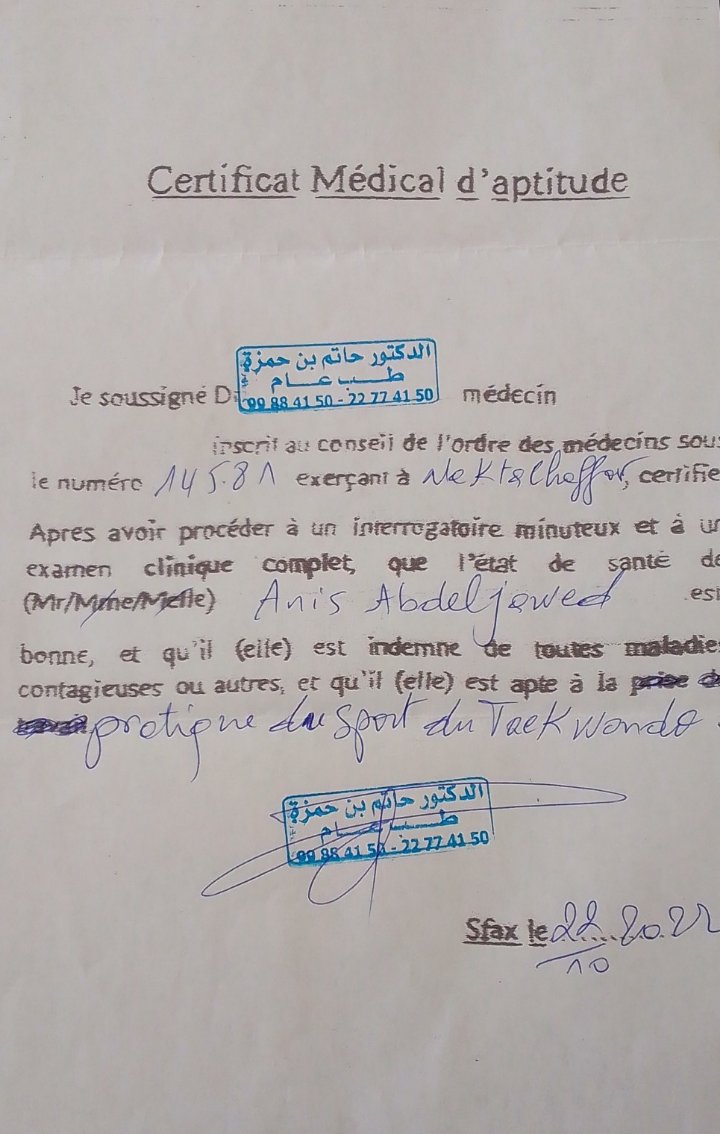 Certificat Médical d'aptitude
الدكتور حاتم بن حمزة
طب عام
99 88 41 50 - 22 77 41 50
Je soussigné D médecin
inscrit au conseil de l'ordre des médecins sous
le numéro 14581 exerçant à certifie
Apres avoir procéder à un interrogatoire minuteux et à un
examen clinique complet, que l'état de santé de
(Mr/Mme/Melle) Anis Abdeljawed est
bonne, et qu'il (elle) est indemne de toutes maladies
contagieuses ou autres, et qu'il (elle) est apte à la prise de
pratique du Sport du TaeKwondo.
الدكتور حاتم بن حمزة
طب عام
99 88 41 50 - 22 77 41 50
Sfax le 22 2022
10